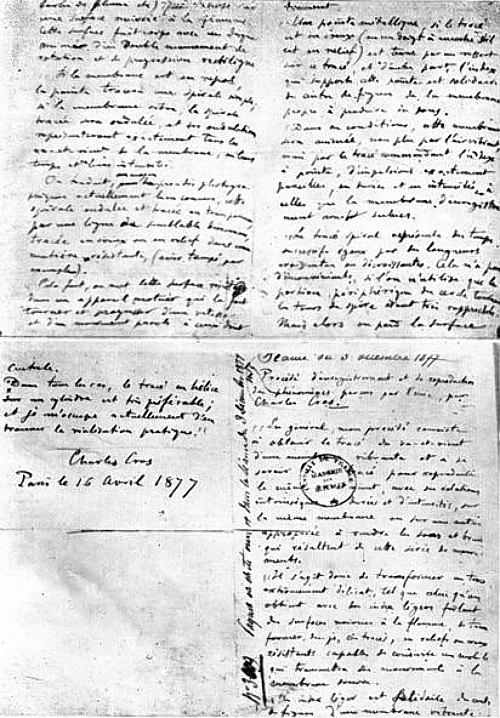 barbe de plume etc.) qui repose sur
une surface noircie à la flamme
Cette surface fait corps avec un disque
animé d'un double mouvement de
rotation et de progression rectiligne
Si la membrane est en repos,
la pointe tracera une spirale simple,
si la membrane vibre, la spirale
tracée sera ondulée, et ses ondulations
représenteront exactement tous les
va-et-vient de la membrane, en leurs
temps et leurs intensités.
On traduit, au moyen de procédés photogra-
phiques actuellement bien connus, cette
spirale ondulée et tracée en transparence
par une ligne de semblable dimension
tracée en creux ou en relief dans une
matière résistante, (acier trempé par
exemple).
Cela fait, on met cette surface
dans un appareil moteur qui la fait
tourner et progresser d'une vitesse
et d'un mouvement pareils à ceux dont
Une pointe métallique, si le tracé
est en creux (ou un doigt à encoche s'il
est en relief) est tenue par un ressort
sur ce tracé, et d'autre part, l'index
qui supporte cette pointe est solidaire
du centre de figure de la membrane
propre à produire des sons.
Dans ces conditions, cette membrane
sera animée, non plus par l'air vibrant
mais par le tracé commandant l'index
à pointe, d'impulsions exactement
pareilles, en durées et en intensités, à
celles que la membrane d'enregistre-
ment avait subies.
Le tracé spiral représente des temps
successifs égaux par des longueurs
croissantes ou décroissantes. Cela n'a pas
d'inconvénients, si l'on n'utilise que la
portion périphérique du cercle, tous
les tours de spire étant très rapprochés
Mais alors on perd la surface
centrale.
Dans tous les cas, le tracé en hélice
sur un cylindre est très préférable,
et je m'occupe actuellement d'en
trouver la réalisation pratique.
Charles Cros
Paris le 16 Avril 1877
Séance du 3 décembre 1877
Procédé d'enregistrement et de reproduction
des phénomènes perçus par l'ouïe, par
Charles Cros.
En général, mon procédé consiste
à obtenir le tracé du va-et-vient
d'une membrane vibrante et à se
servir de ce tracé pour reproduire
le même va-et-vient, avec ses relations
intrinsèques de durées et d'intensités, sur
la même membrane ou sur une autre
appropriée à rendre les sons et bruits
qui résultent de cette série de mouve-
ments.
Il s'agit donc de transformer un tracé
extrêmement délicat, tel que celui qu'on
obtient avec des index légers frôlant
des surfaces noircies à la flamme, de trans-
former, dis-je, ces tracés, en reliefs ou creux
résistants capables de conduire un mobile
qui transmettra ses mouvements à la
membrane sonore.
Un index léger est solidaire du centre
de figure d'une membrane vibrante